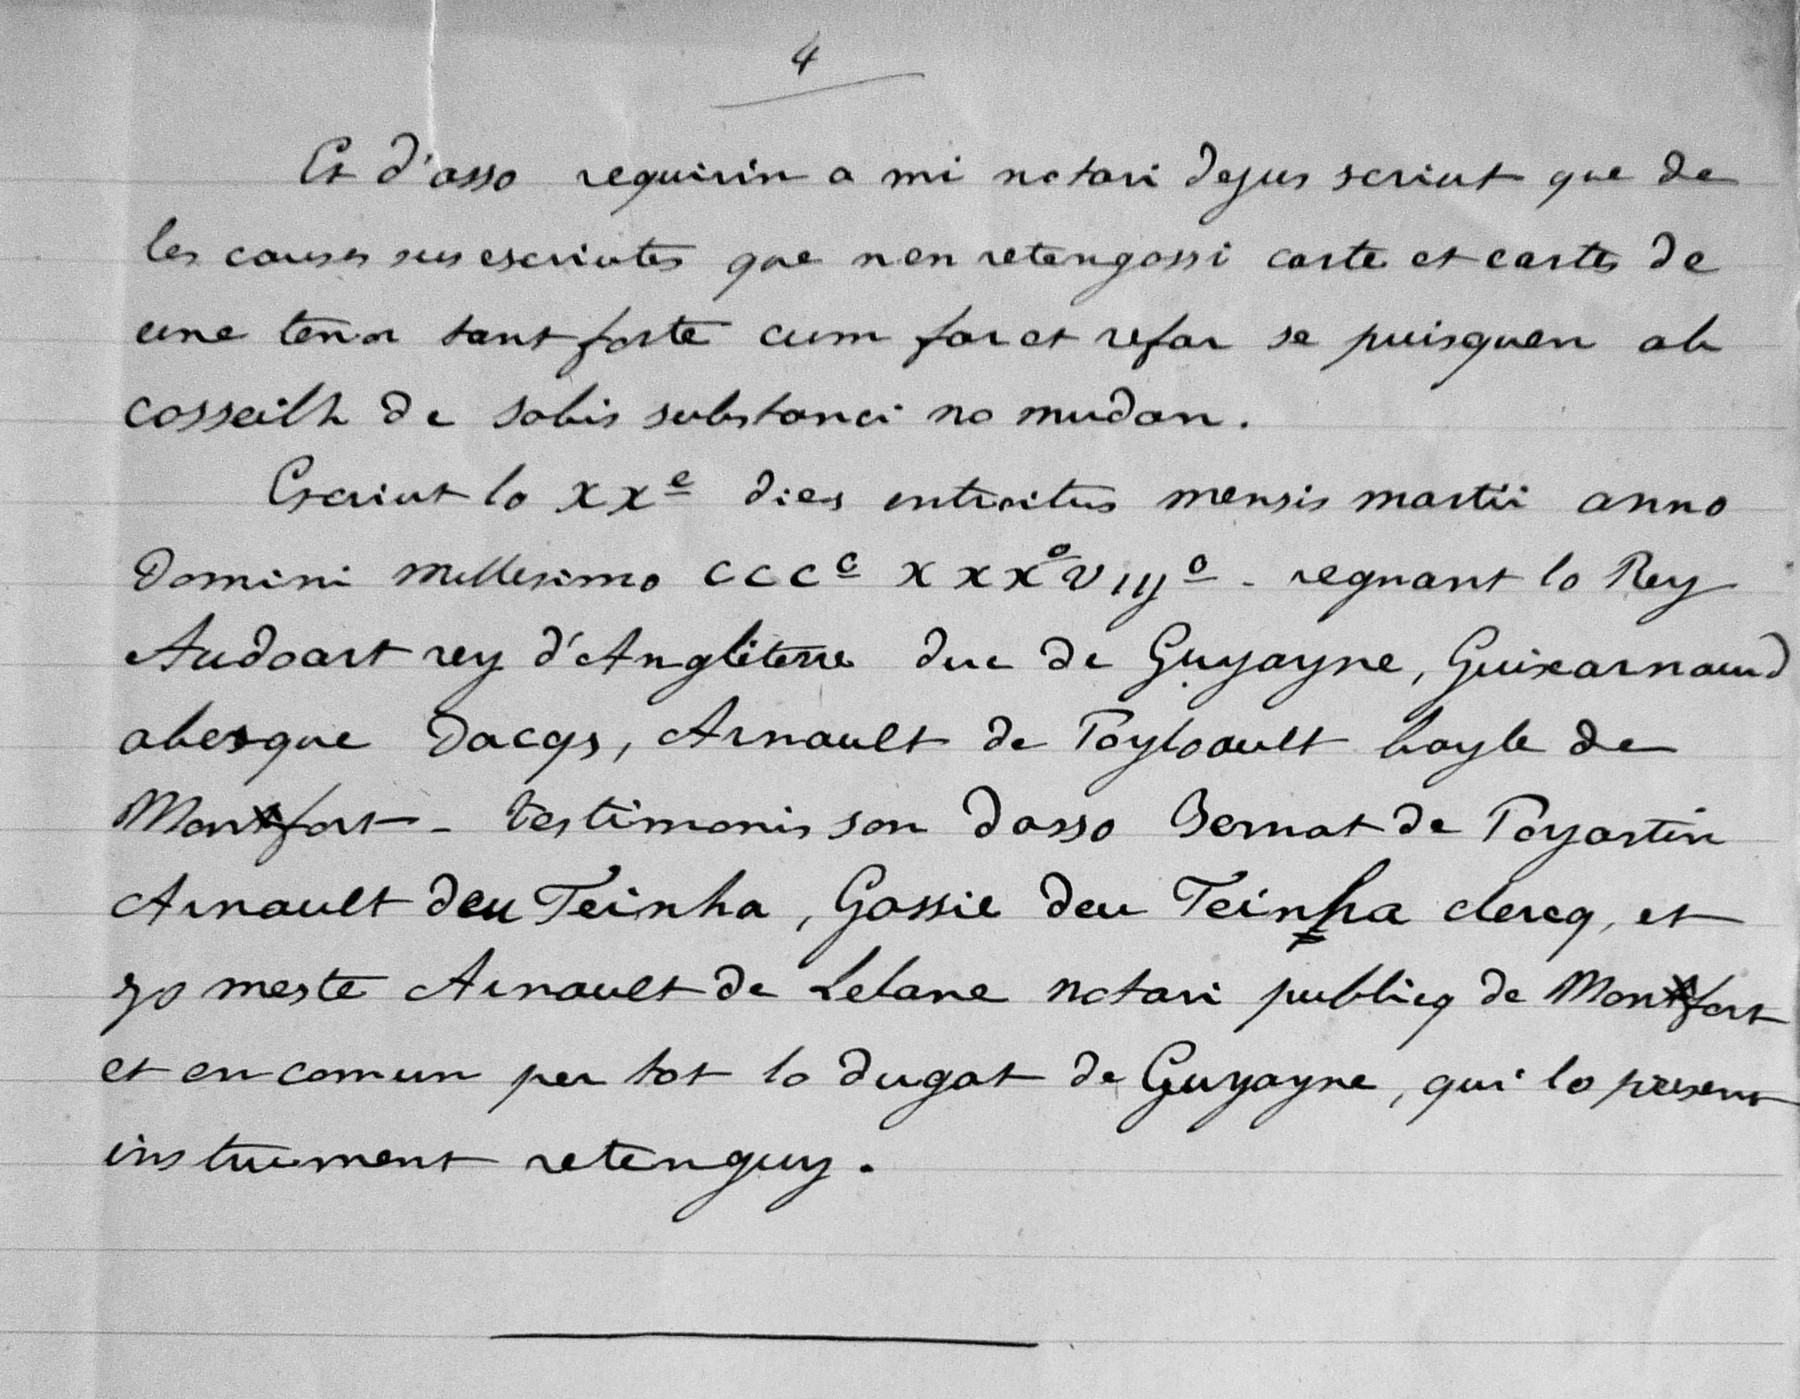 4
Et d'asso requirin a mi notari dejus scriut que de
les causes sus escriutes que nen retengossi carte et cartes de
une tenor tant forte cum far et refar se puisquen ab
cosseilh de sabis substanci no mudan.
Escriut lo XXe dies introitus mensis martii anno
Domini millesimo CCCc XXXo VIIJo - regnant lo Rey
Audoart rey d'Angléterre duc de Guyayne, Guixarnaud
abesque Dacqs, Arnault de Poyloault bayle de
Montfort - testimonis son dasso Bernat de Poyartin
Arnault deu Teinha, Gassie deu Teinha clercq, et
yo meste Arnault de Lelane notari publicq de Montfort
et en comun per tot lo dugat de Guyayne, qui lo present
instrument retenguy.